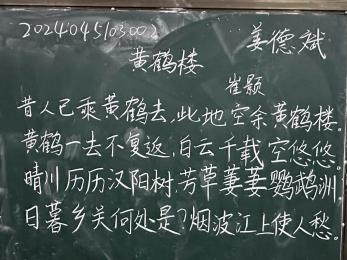 2024045103002 姜德斌
黄鹤楼
崔颢
昔人已乘黄鹤去,此地空余黄鹤楼。
黄鹤一去不复返,白云千载空悠悠。
晴川历历汉阳树,芳草萋萋鹦鹉洲,
日暮乡关何处是?烟波江上使人愁。